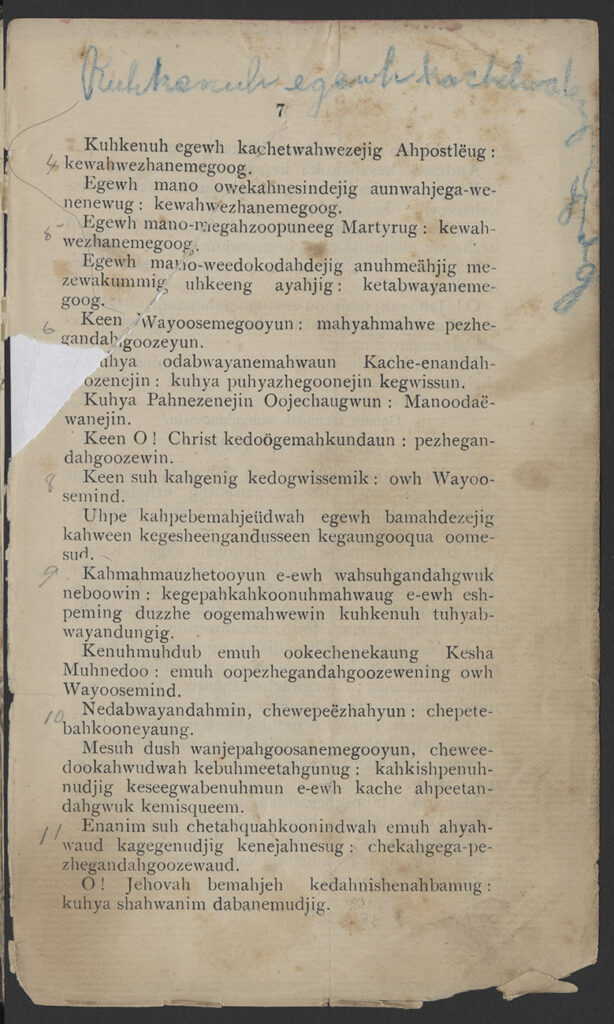 Kuhkenuh egewh kachetwah
7
Kuhkenuh egewh kachetwahwezejig Ahpostlëug :
4 kewahwezhanemegoog.
Egewh mano owekahnesindejig aunwahjega-we-
nenewug : kewahwezhanemegoog.
Egewh mano-megahzoopuneeg Martyrug : kewah-
wezhanemegoog.
Egewh mano-weedokodahdejig anuhmeähjig me-
zewakummig uhkeeng ayahjig : ketabwayaneme-
goog.
6 Keen Wayoosemegooyun : mahyahmahwe pezhe-
gandahgoozeyun.
uhya odabwayanemahwaun Kache-enandah-
ozenejin : kuhya puhyazhegoonejin kegwissun.
Kuhya Pahnezenejin Oojechaugwun : Manoodaë-
wanejin.
Keen O ! Christ kedoögemahkundaun : pezhegan-
dahgoozewin.
8 Keen suh kahgenig kedogwissemik : owh Wayoo-
semind.
Uhpe kahpebemahjeüdwah egewh bamahdezejig
kahween kegesheengandusseen kegaungooqua oome-
sud.
9 Kahmahmauzhetooyun e-ewh wahsuhgandahgwuk
neboowin : kegepahkahkoonuhmahwaug e-ewh esh-
peming duzzhe oogemahwewin kuhkenuh tuhyab-
wayandungig.
Kenuhmuhdub emuh ookechenekaung Kesha
Muhnedoo : emuh oopezhegandahgoozewening owh
Wayoosemind.
10 Nedabwayandahmin, chewepeëzhahyun : chepete-
bahkooneyaung.
Mesuh dush wanjepahgoosanemegooyun, chewee-
dookahwudwah kebuhmeetahgunug : kahkishpenuh-
nudjig keseegwabenuhmun e-ewh kache ahpeetan-
dahgwuk kemisqueem.
11 Enanim suh chetahquahkoonindwah emuh ahyah-
waud kagegenudjig kenejahnesug : chekahgega-pe-
zhegandahgoozewaud.
O ! Jehovah bemahjeh kedahnishenahbamug :
kuhya shahwanim dabanemudjig.